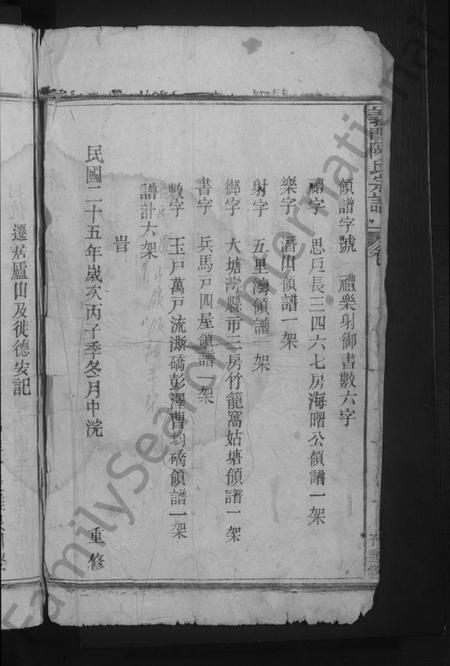 義門陳氏宗譜
卷
領譜字號　禮樂射御書數六字
禮字　思戶長三四六七房海曙公領譜一架
樂字　山領譜一架
射字　五里領譜一架
御字　大塘縣市三房竹籠窩姑塘領譜一架
書字　兵馬戶四屋領譜一架
數字　玉戶萬戶流澌橋彭澤曹均橋領譜一架
譜計六架
旹
民國二十五年歲次丙子季冬月中浣　重修
遷居廬山及徙德安記
FamilySearch International